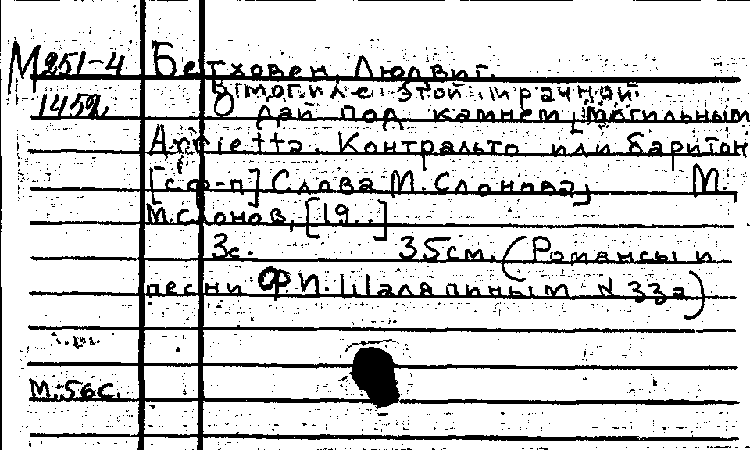 М 251-4 Бетховен, Людвиг.
В могиле этой мрачной.
1452. О дай под камнем могильным
Arrietta. Контральто или баритон
[с ф-п] Слова М. Слонова, М.,
М. Слонов, [19..]
3с. 35см. (Романсы и
песни Ф.И. Шаляпиным N 33а)
М.:56с.